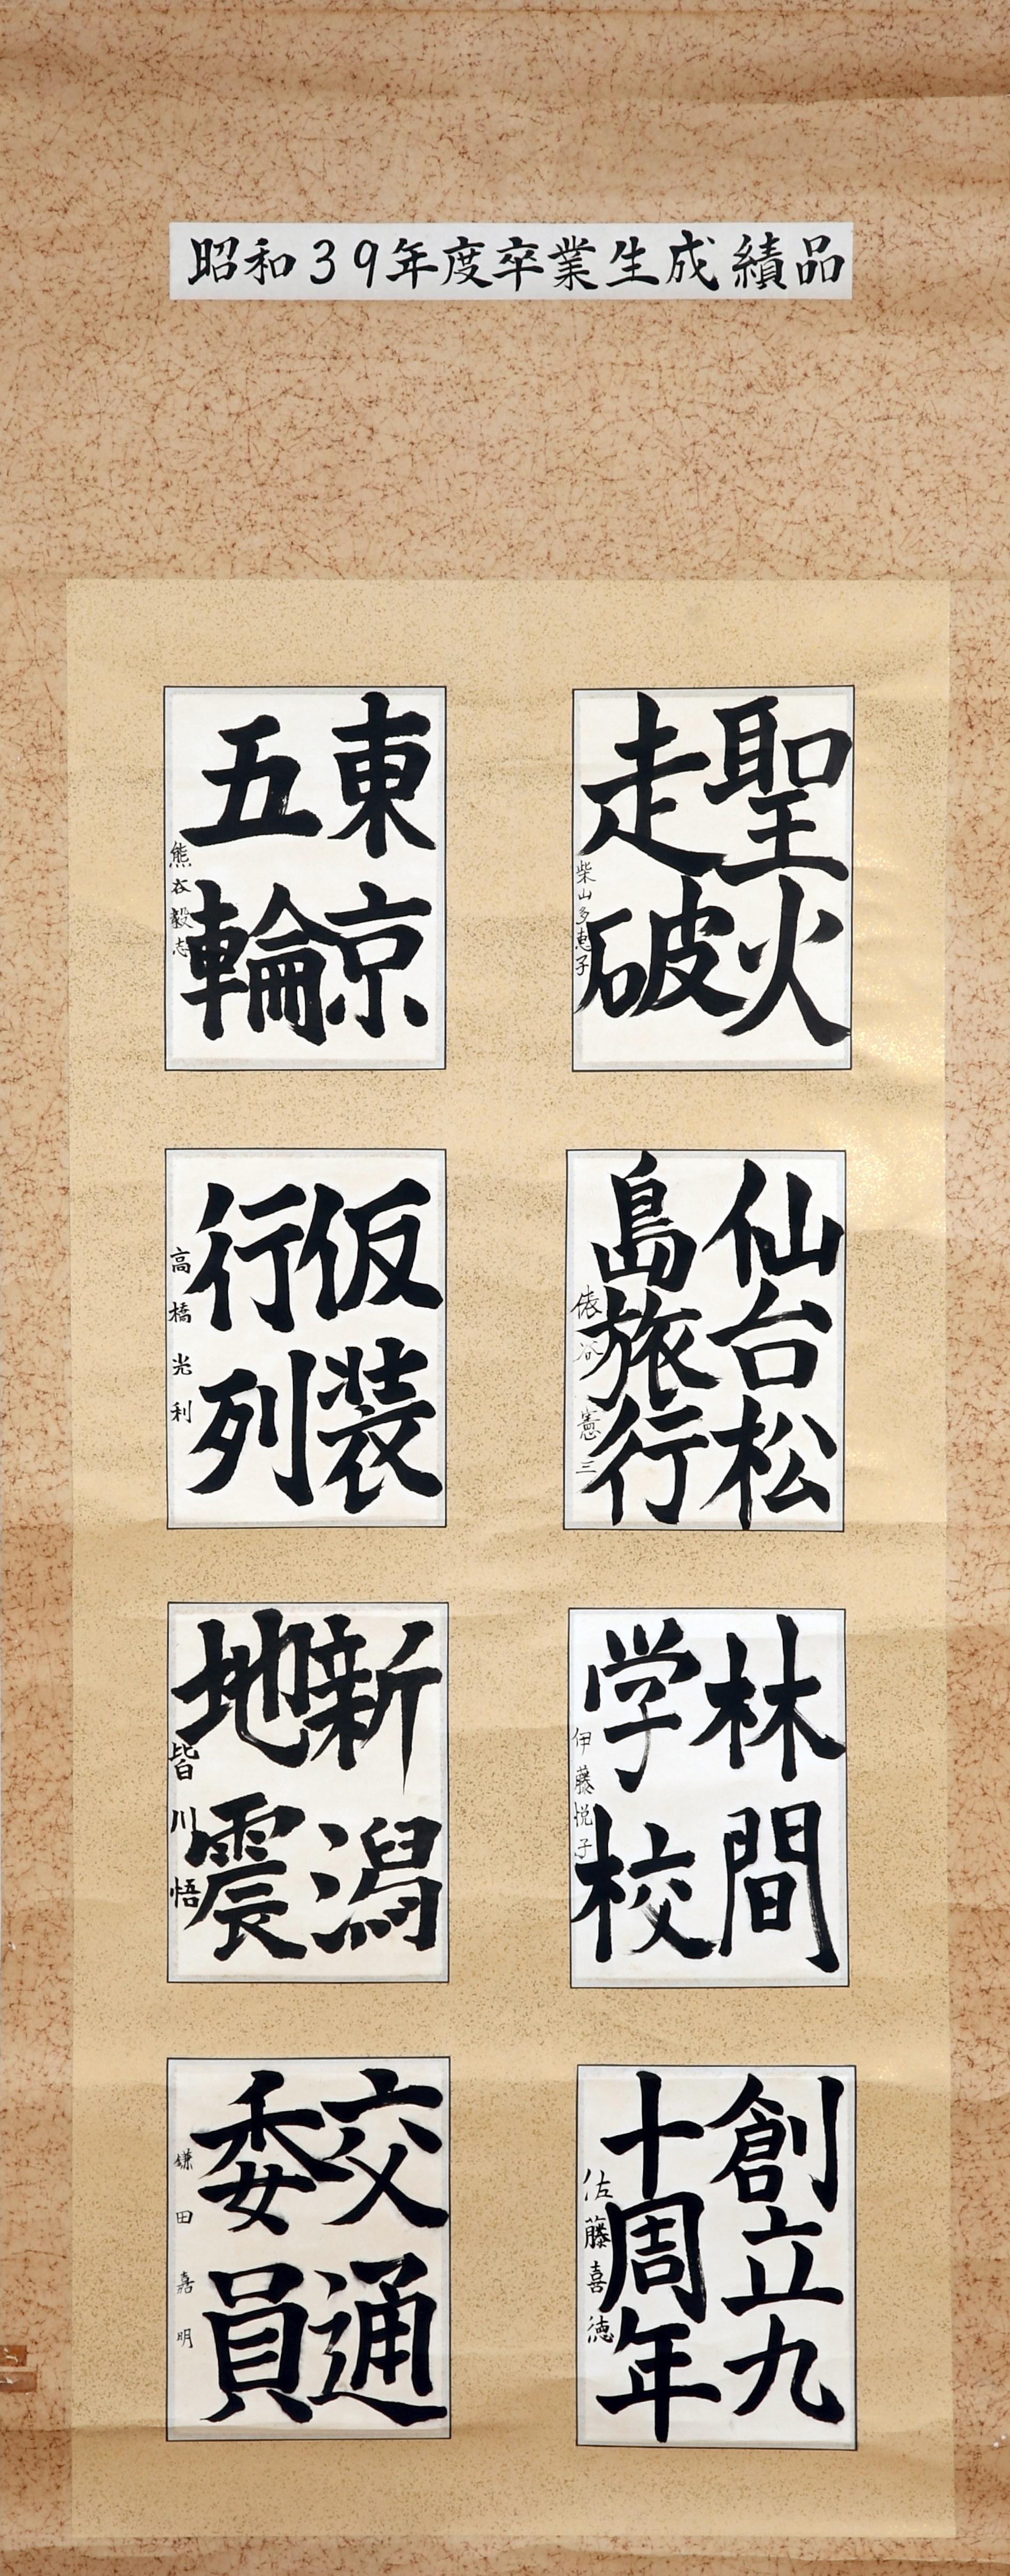 昭和39年度卒業生成績品
聖火
走破
柴山多恵子
東京
五輪
熊谷毅志
仙台松
島旅行
俵谷憲三
仮装
行列
高橋光利
林間
学校
伊藤悦子
新潟
地震
皆川悟
創立九
十周年
佐藤喜徳
交通
委員
鎌田嘉明